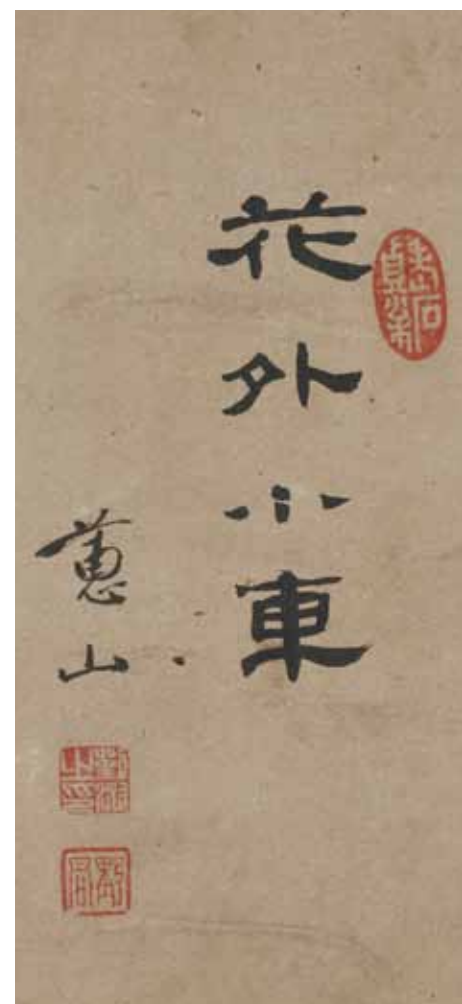 花外小車
蕙山